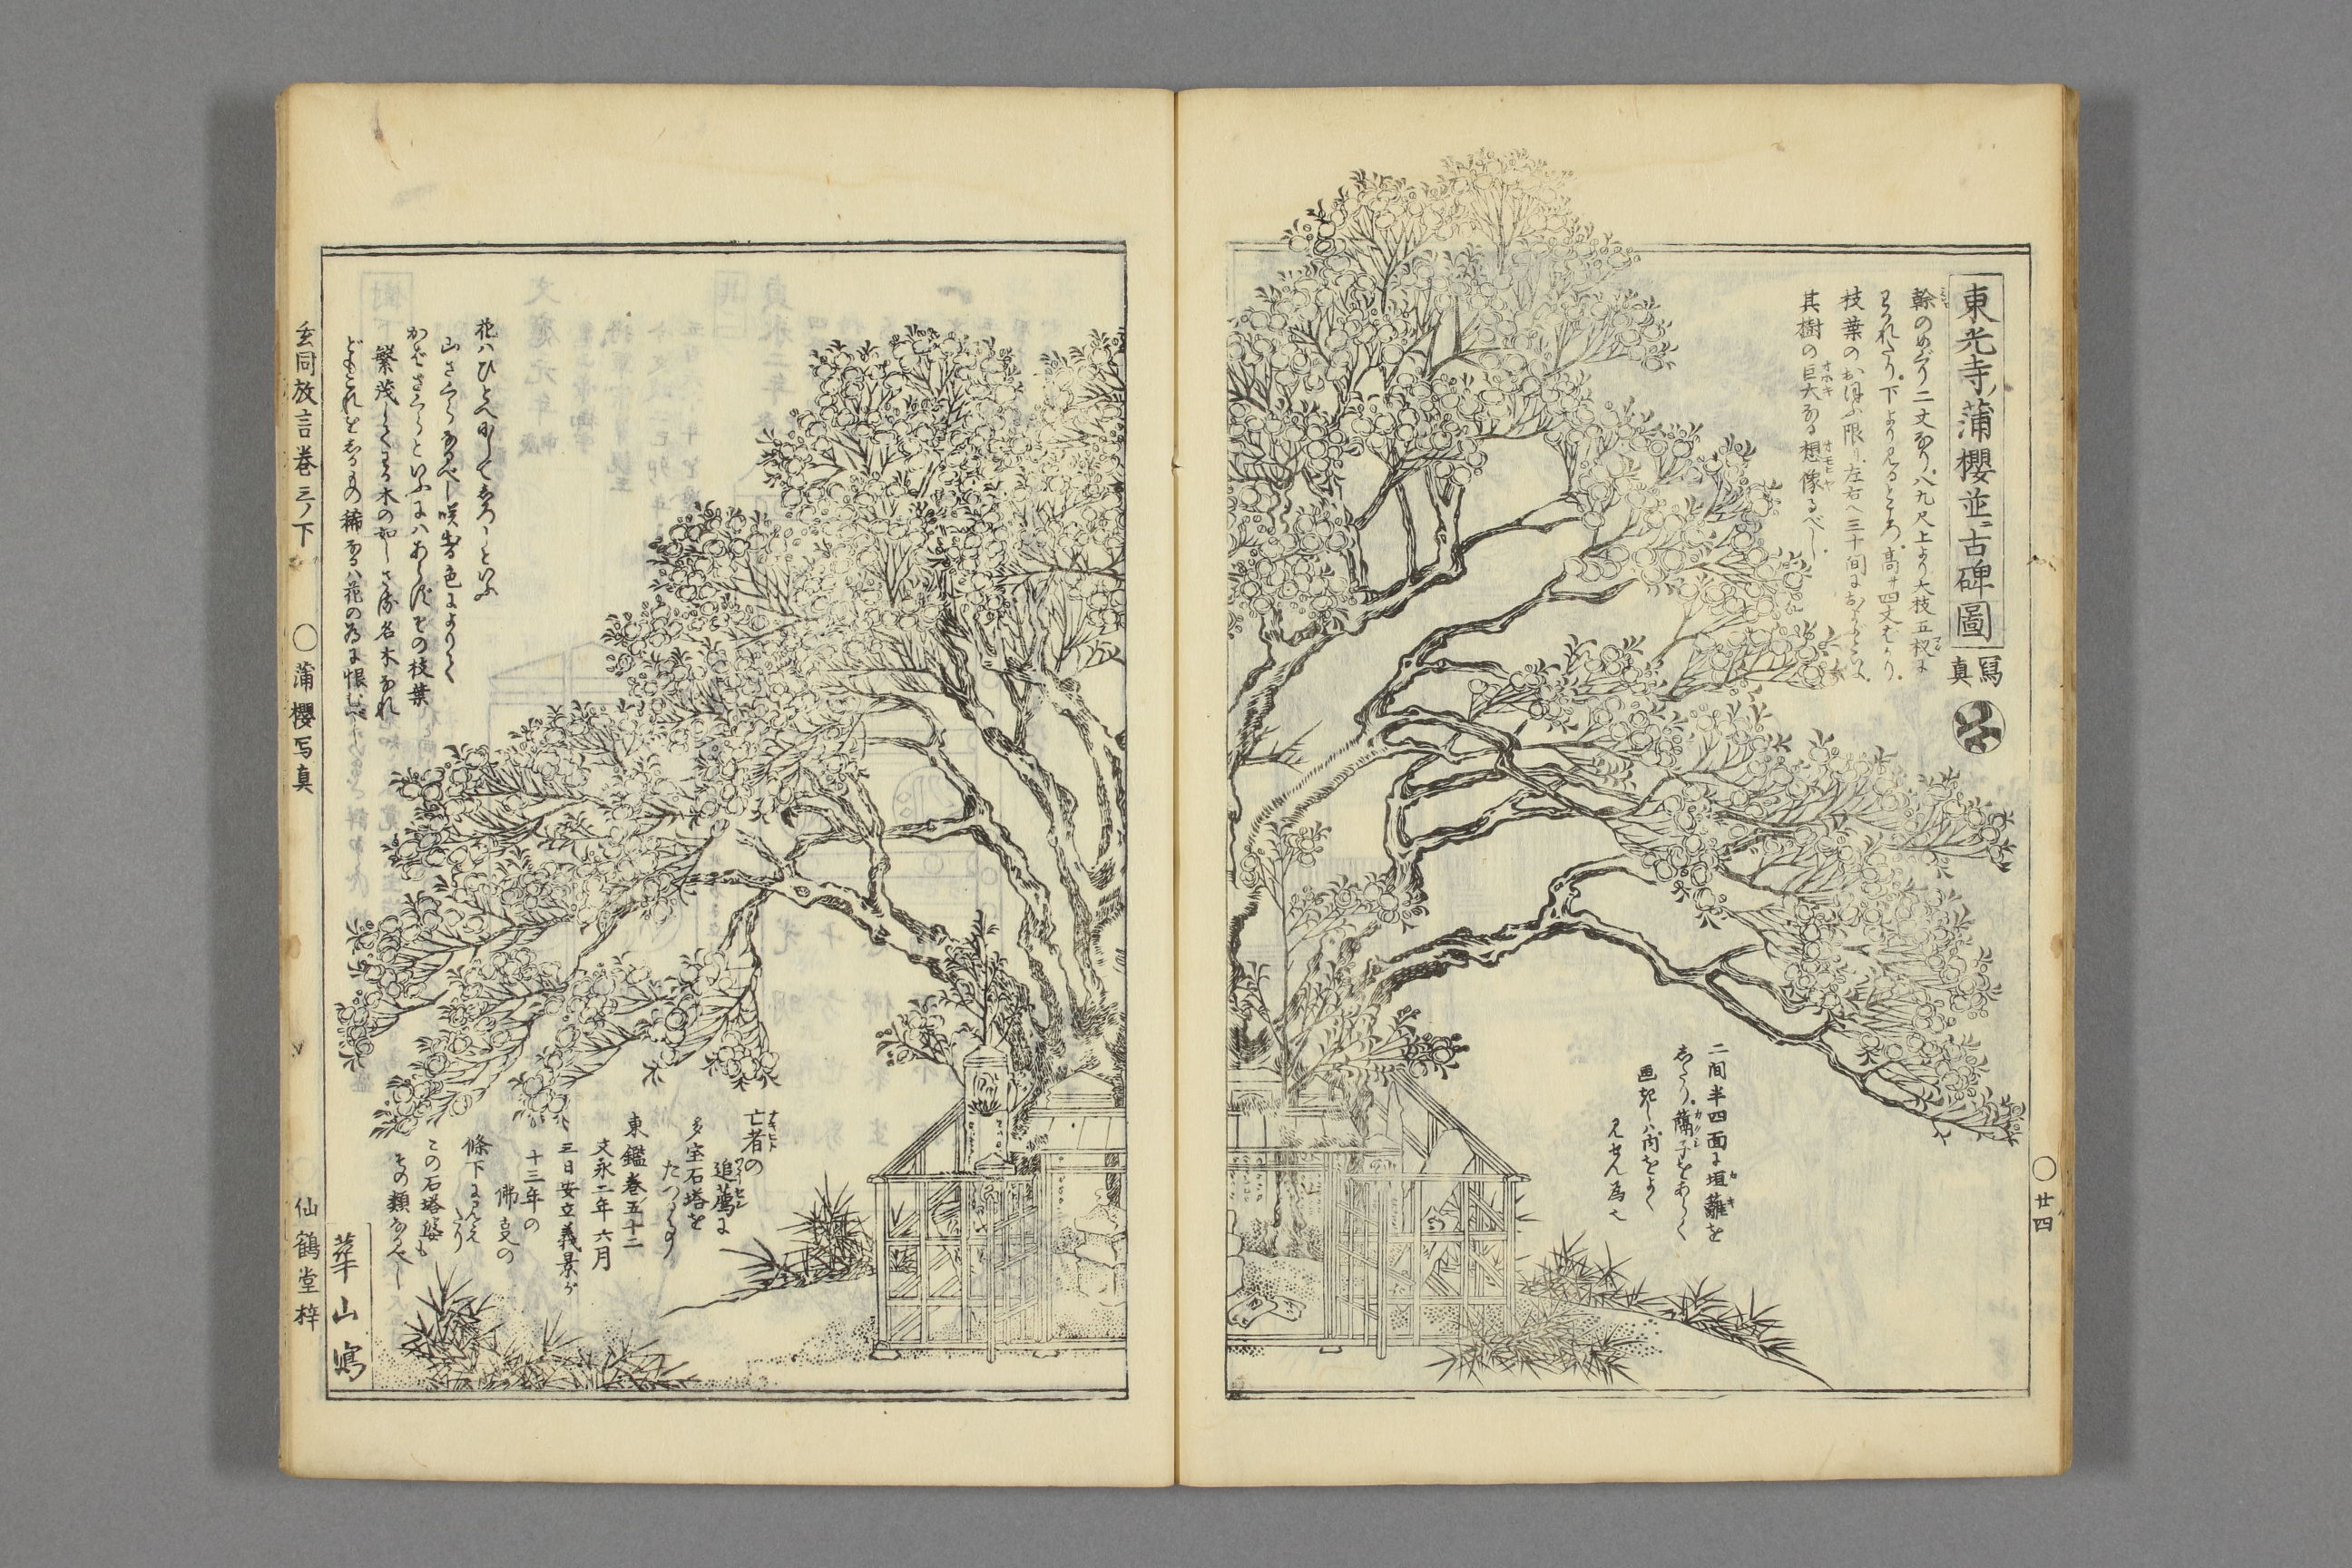 東光寺蒲櫻並古碑圖
寫真
幹のめぐり二丈あり八九尺上より大枝五杈に
わかれたり下より見るところ高サ四丈もあり
枝葉のおほふ限り左右へ三十間におよぶといふ
其樹の巨大なる想像るべし
二間半四面に垣籬を
しつらふ
画記しハ内をよく
見せん為也
廿四
花ハひとへにしてしろしといふ
山さくらなるべし咲出る色によりて
かばざくらといふにハあらずその枝葉
繁茂してまろ木の如しさる名木なれ
どもこれをしるもの稀なるハ花の為に恨むべし
亡者の
追薦に
多宝石塔を
たつるの
東鑑巻五十二
文永二年六月
三日安立義景が
十三年の
佛
條下に見えたり
この石塔婆も
その類なるべし
華山寫
玄同放言巻三ノ下
○蒲櫻写真
仙鶴堂梓